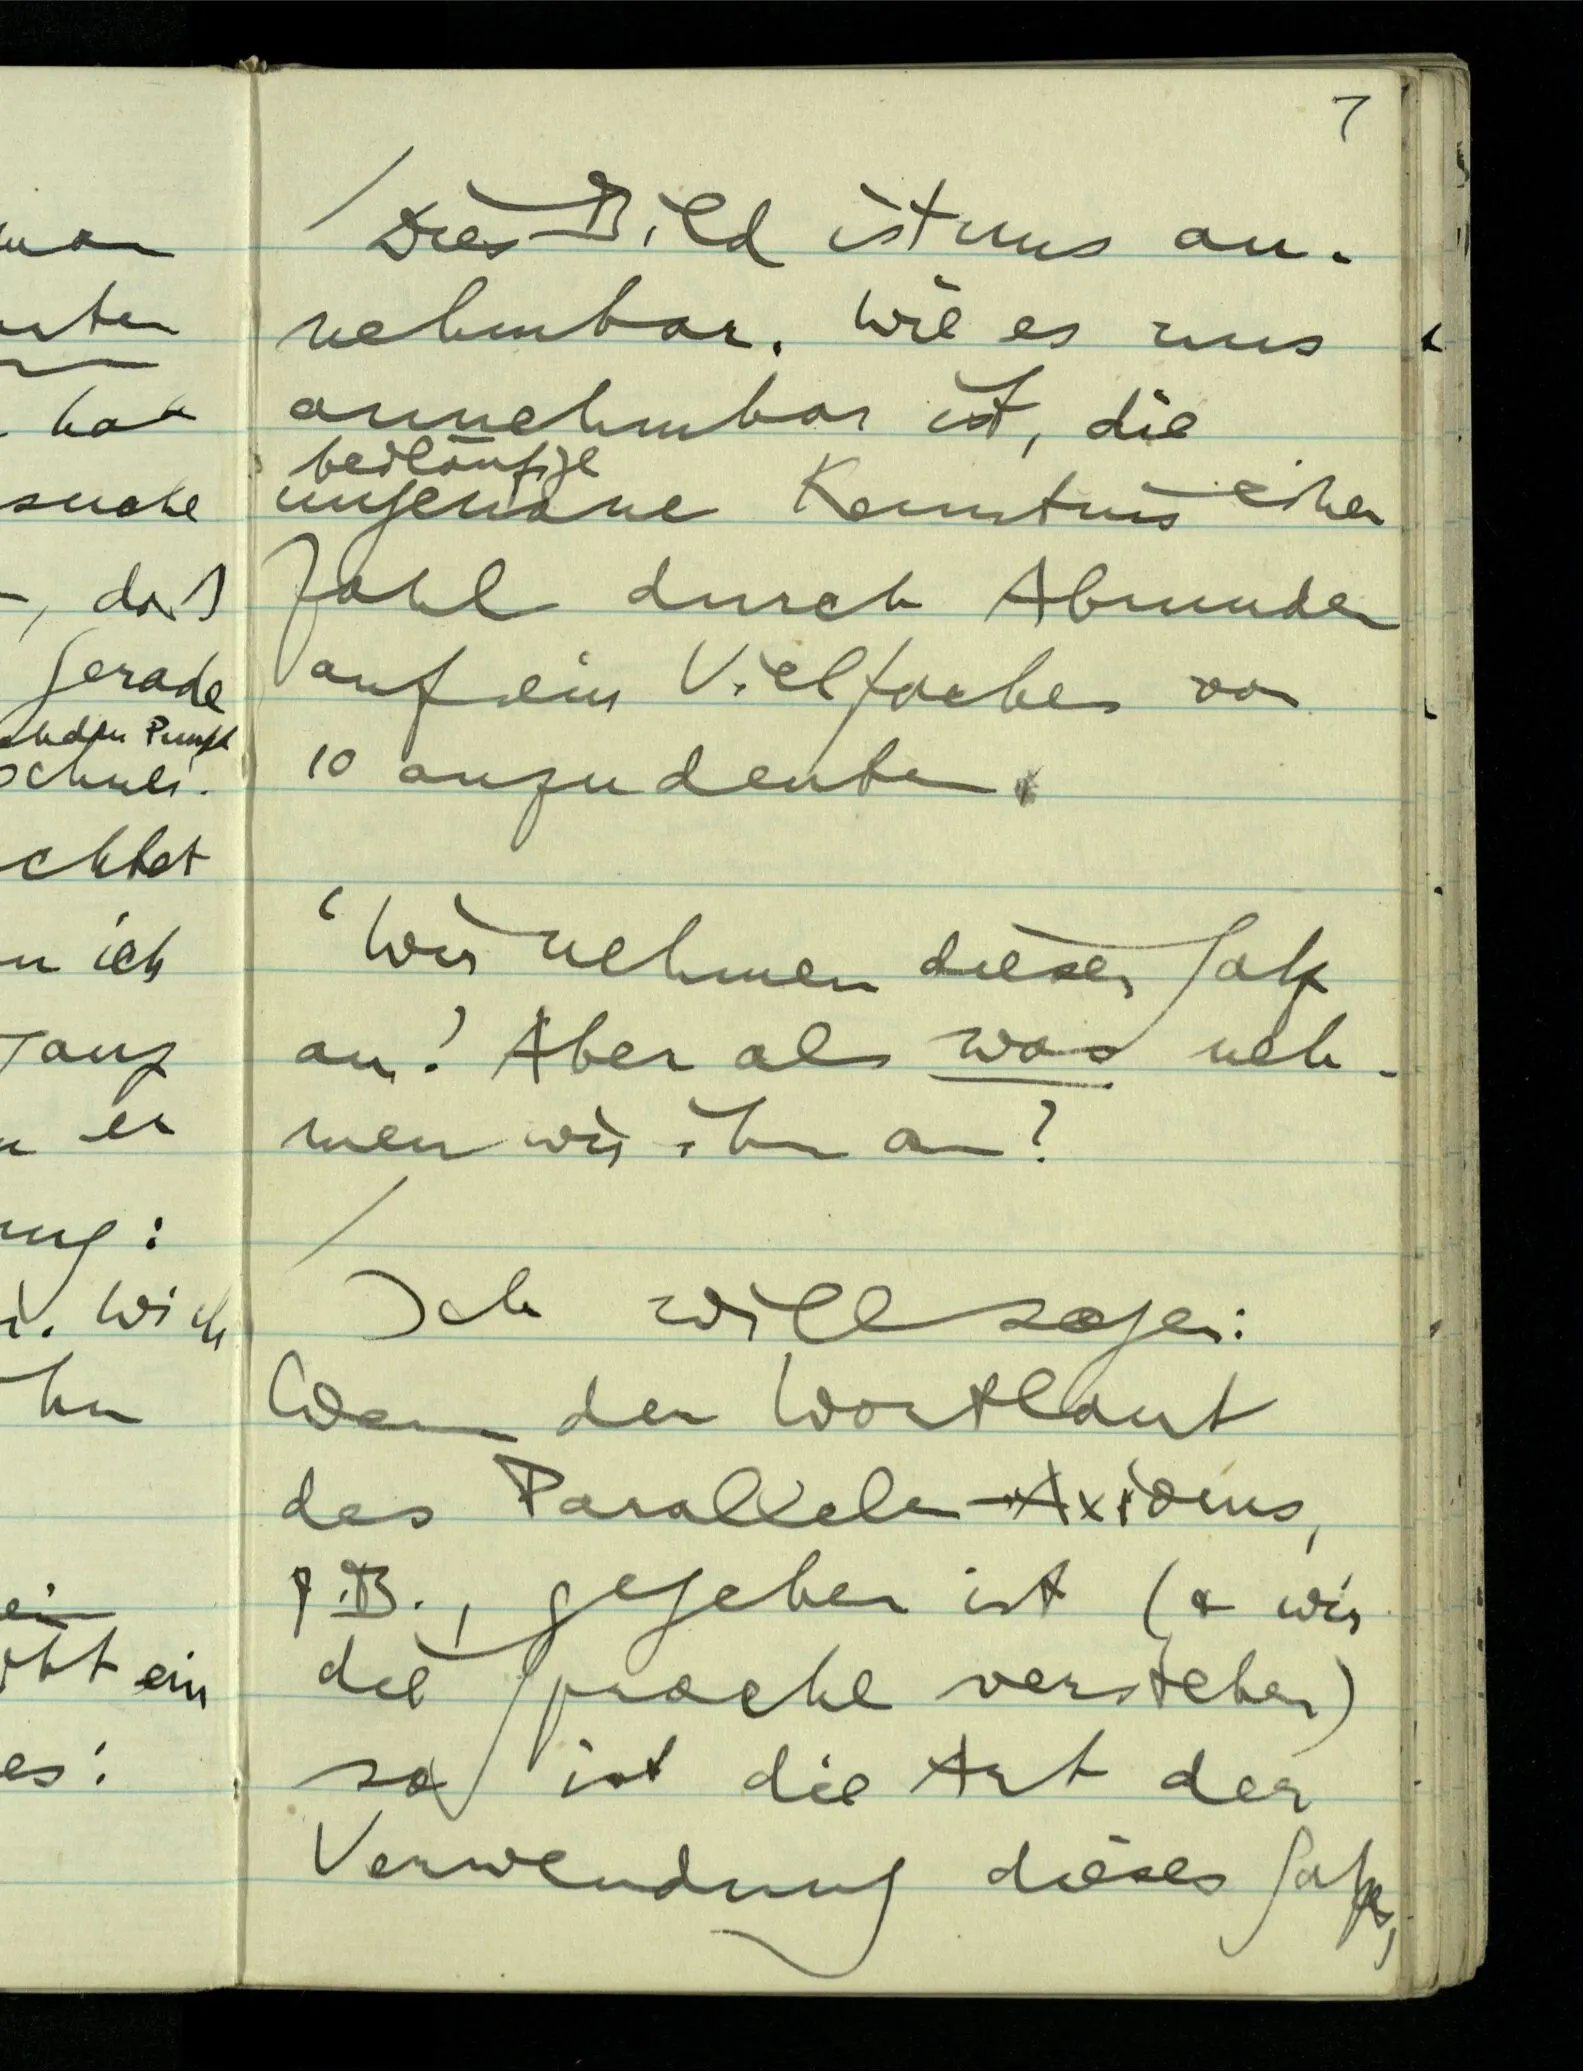 7
man
/ Dies Bild ist uns an-
nehmbar. Wie es uns
annehmbar ist, die
beiläufige
ungenaue Kenntnis einer
Zahl durch Abrunden
auf ein Vielfaches von
10 anzudeuten.
'Wir nehmen diesen Satz
an! Aber als was neh-
men wir ihn an?
/
Ich will sagen:
Wenn der Wortlaut
des Parallelen-Axioms,
z.B., gegeben ist (& wir
die Sprache verstehen)
so ist die Art der
Verwendung dieses Satzes,
hat
suche
, daß
gerade
Schnei-
chtet
ich
ganz
er
ung:
Wich
ein
es: